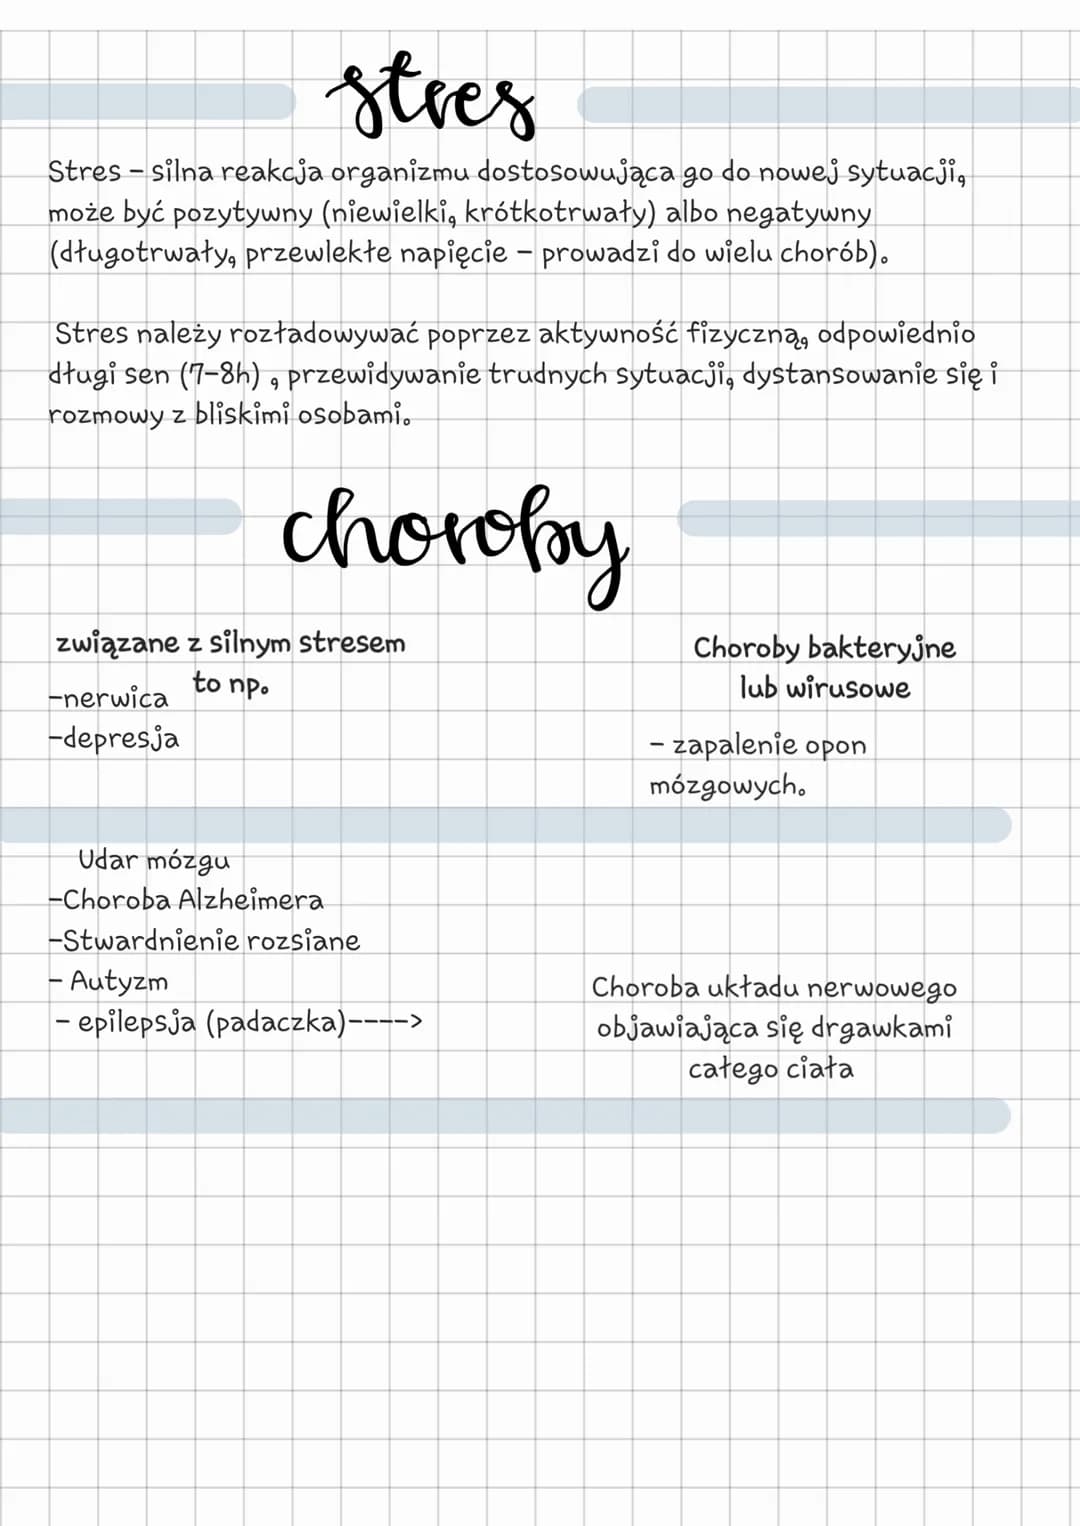 stres
Stres – silna reakcja organizmu dostosowująca go do nowej sytuacji,
może być pozytywny (niewielki, krótkotrwały) albo negatywny
(długotrwały, przewlekłe napięcie – prowadzi do wielu chorób).
Stres należy rozładowywać poprzez aktywność fizyczną, odpowiednio
długi sen (7-8h) , przewidywanie trudnych sytuacji, dystansowanie się i
rozmowy z bliskimi osobami.
choroby
związane z silnym stresem
to np.
-nerwica
-depresja
Choroby bakteryjne
lub wirusowe
- zapalenie opon
mózgowych.
Udar mózgu
-Choroba Alzheimera
-Stwardnienie rozsiane
- Autyzm
- epilepsja (padaczka)---->
Choroba układu nerwowego
objawiająca się drgawkami
całego ciała